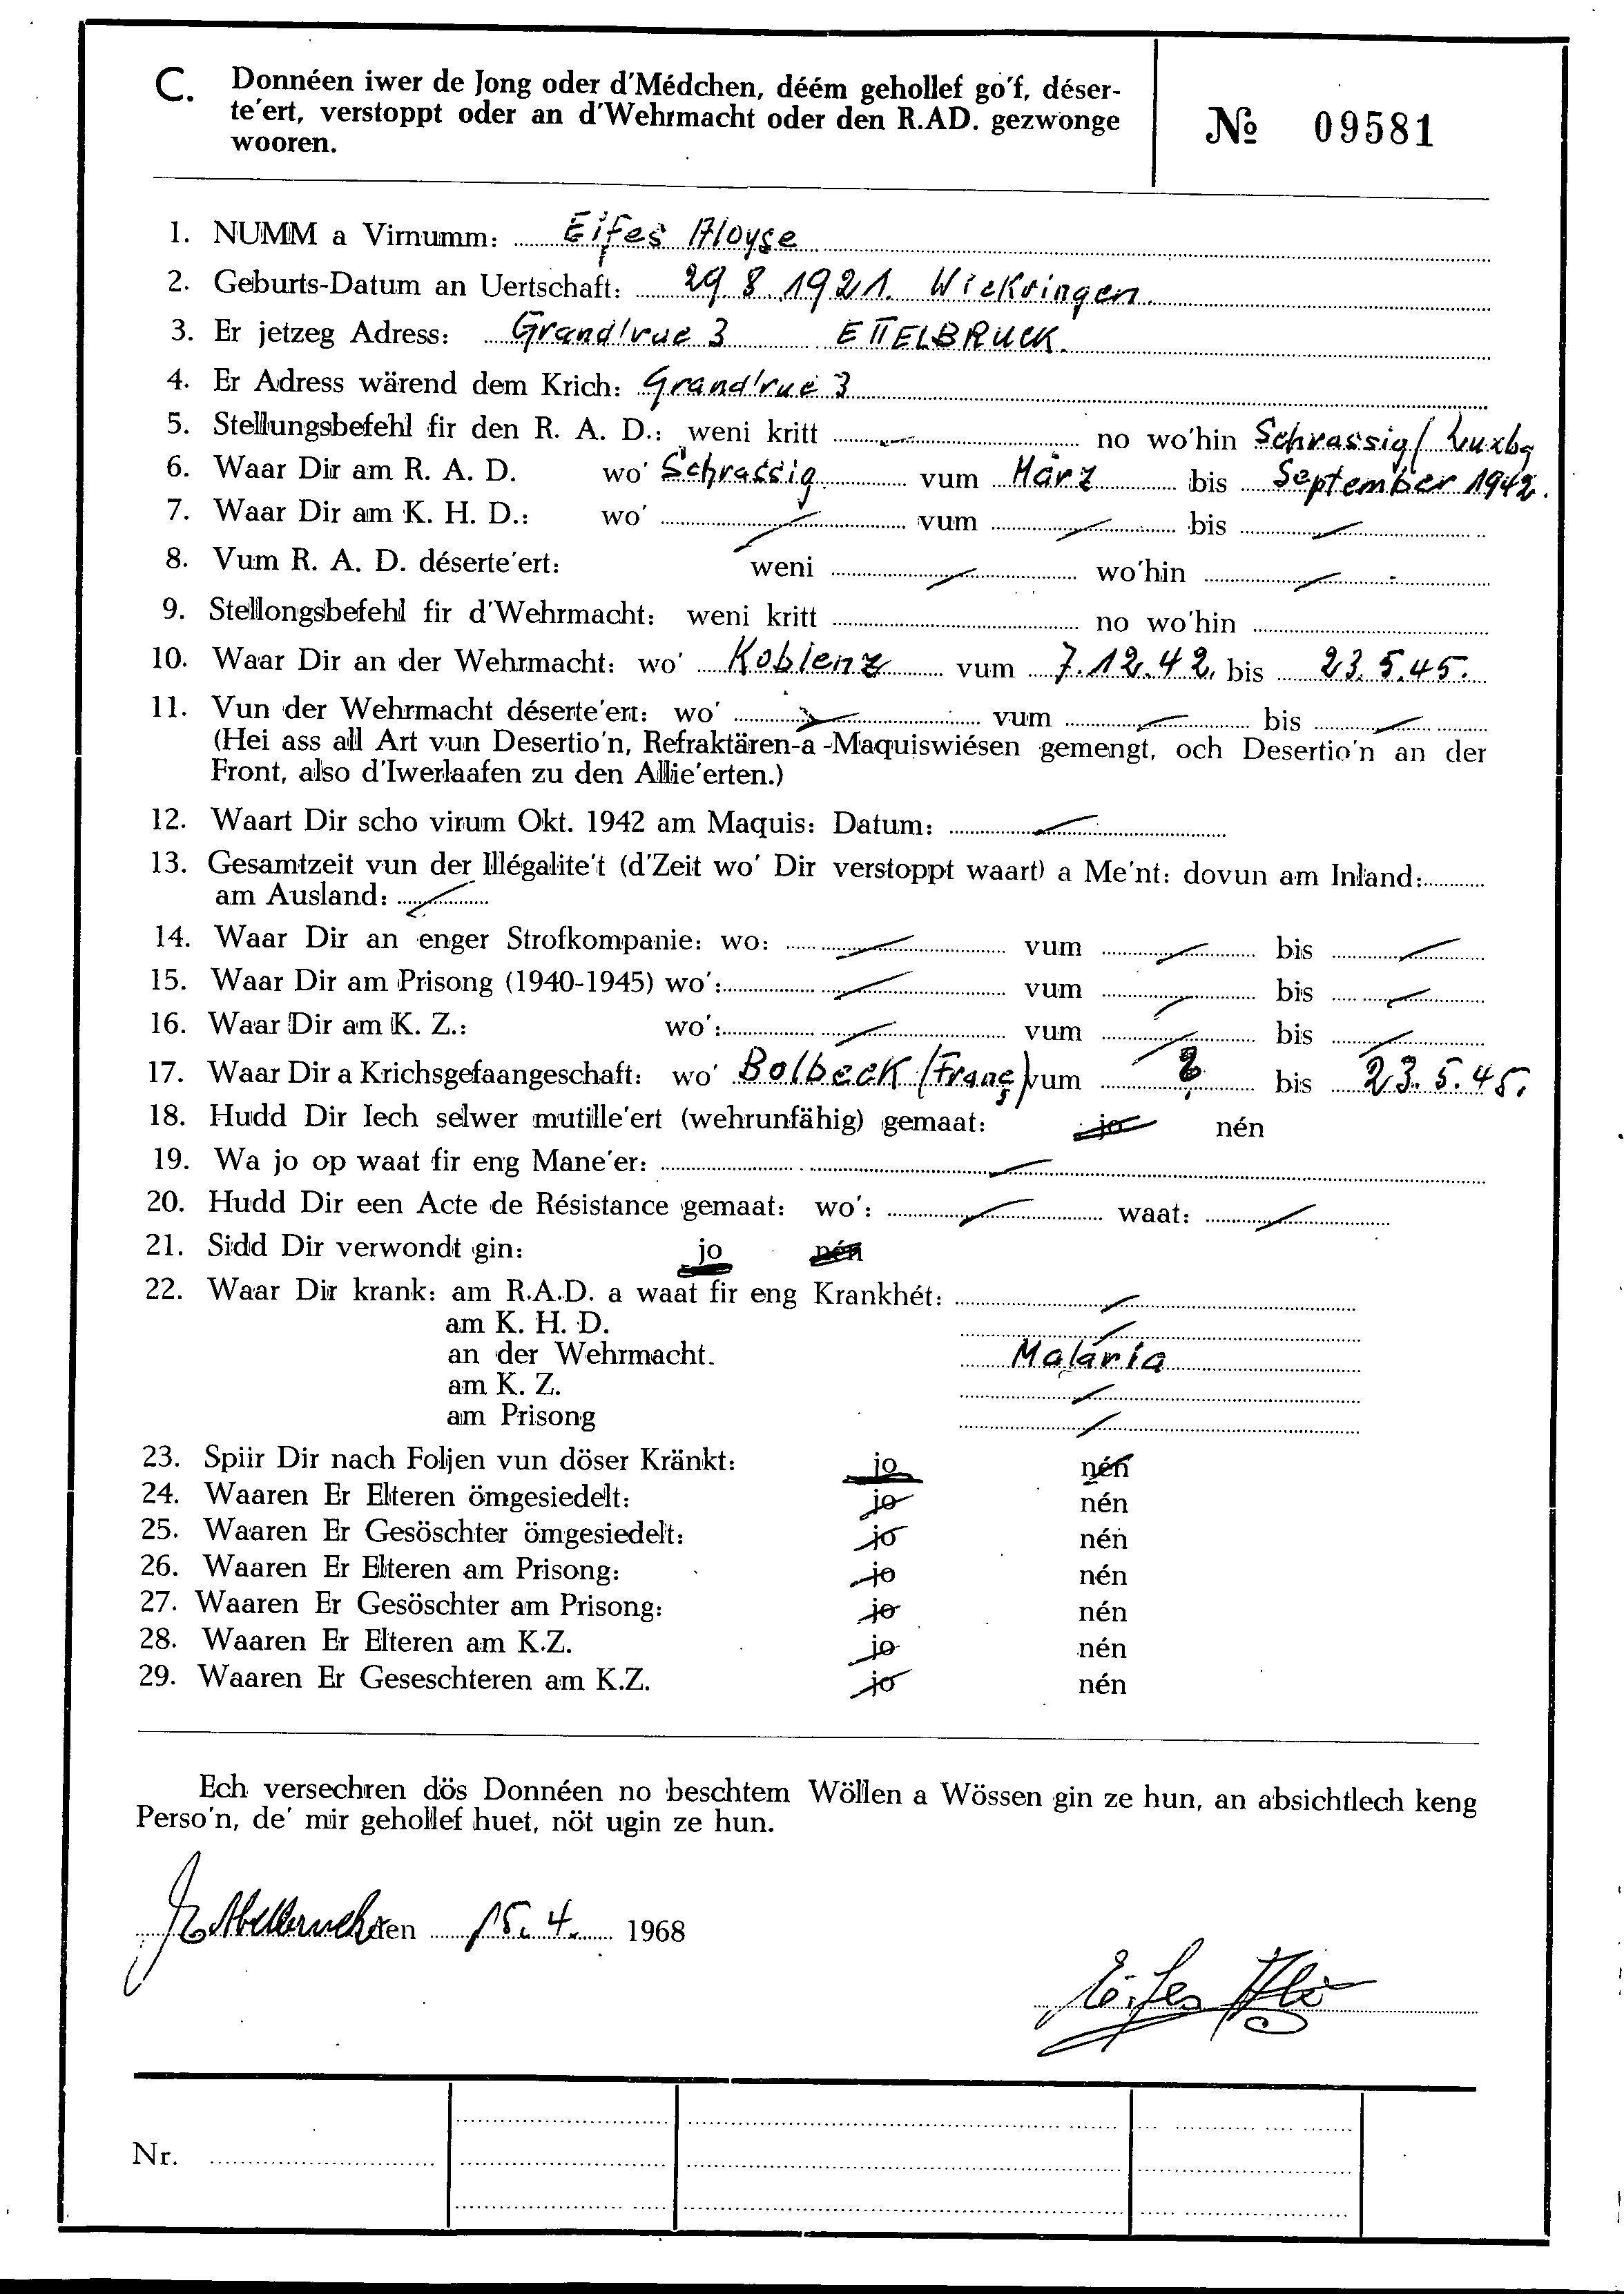 C. Donnéen iwer de Jong oder d'Médchen, déém gehollef go'f, déser-
te'ert, verstoppt oder an d'Wehrmacht oder den R.AD. gezwonge
wooren.
№ 09581
1. NUMM a Virnumm: Eifes Aloyse
2. Geburts-Datum an Uertschaft: 29.8.1921. Wickringen.
3. Er jetzeg Adress: Grand'rue 3 ETTELBRUCK.
4. Er Adress wärend dem Krich: Grand'rue 3
5. Stellungsbefehl fir den R. A. D.: weni kritt no wo'hin Schrassig/Luxbg
6. Waar Dir am R. A. D. wo' Schrassig vum März bis September 1942.
7. Waar Dir am K. H. D.: wo' vum bis
8. Vum R. A. D. déserte'ert: weni wo'hin
9. Stellongsbefehl fir d'Wehrmacht: weni kritt no wo'hin
10. Waar Dir an der Wehrmacht: wo' Koblenz vum 7.12.42. bis 23.5.45.
11. Vun der Wehrmacht déserte'ert: wo' vum bis
(Hei ass all Art vun Desertio'n, Refraktären-a-Maquiswiésen gemengt, och Desertio'n an der
Front, also d'Iwerlaafen zu den Allie'erten.)
12. Waart Dir scho virum Okt. 1942 am Maquis: Datum:
13. Gesamtzeit vun der Illégalite't (d'Zeit wo' Dir verstoppt waart) a Me'nt: dovun am Inland:
am Ausland:
14. Waar Dir an enger Strofkompanie: wo: vum bis
15. Waar Dir am Prisong (1940-1945) wo': vum bis
16. Waar Dir am K. Z.: wo': vum bis
17. Waar Dir a Krichsgefaangeschaft: wo' Bolbeck (Franç) vum ? bis 23.5.45.
18. Hudd Dir Iech selwer mutille'ert (wehrunfähig) gemaat: jo nén
19. Wa jo op waat fir eng Mane'er:
20. Hudd Dir een Acte de Résistance gemaat: wo': waat:
21. Sidd Dir verwondt gin: jo nén
22. Waar Dir krank: am R.A.D. a waat fir eng Krankhét:
am K. H. D.
an der Wehrmacht. Malaria
am K. Z.
am Prisong
23. Spiir Dir nach Foljen vun döser Kränkt: jo nén
24. Waaren Er Elteren ömgesiedelt: jo nén
25. Waaren Er Gesöschter ömgesiedelt: jo nén
26. Waaren Er Elteren am Prisong: jo nén
27. Waaren Er Gesöschter am Prisong: jo nén
28. Waaren Er Elteren am K.Z. jo nén
29. Waaren Er Geseschteren am K.Z. jo nén
Ech versechren dös Donnéen no beschtem Wöllen a Wössen gin ze hun, an absichtlech keng
Perso'n, de' mir gehollef huet, nöt ugin ze hun.
den 15.4. 1968
Eifes Alo
Nr.